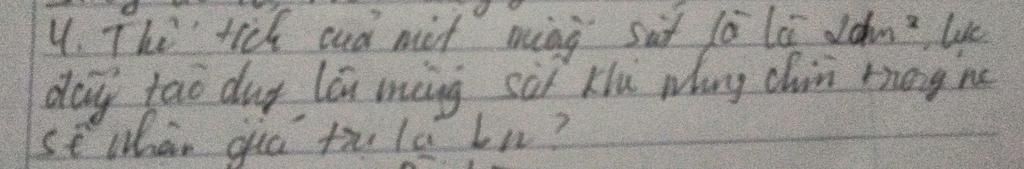 4. Thể tích của một miếng sắt lõ là 2dm³, lực
đẩy tác dụng lên miếng sắt khi nhúng chìm trong nc
sẽ nhận giá trị là bn?